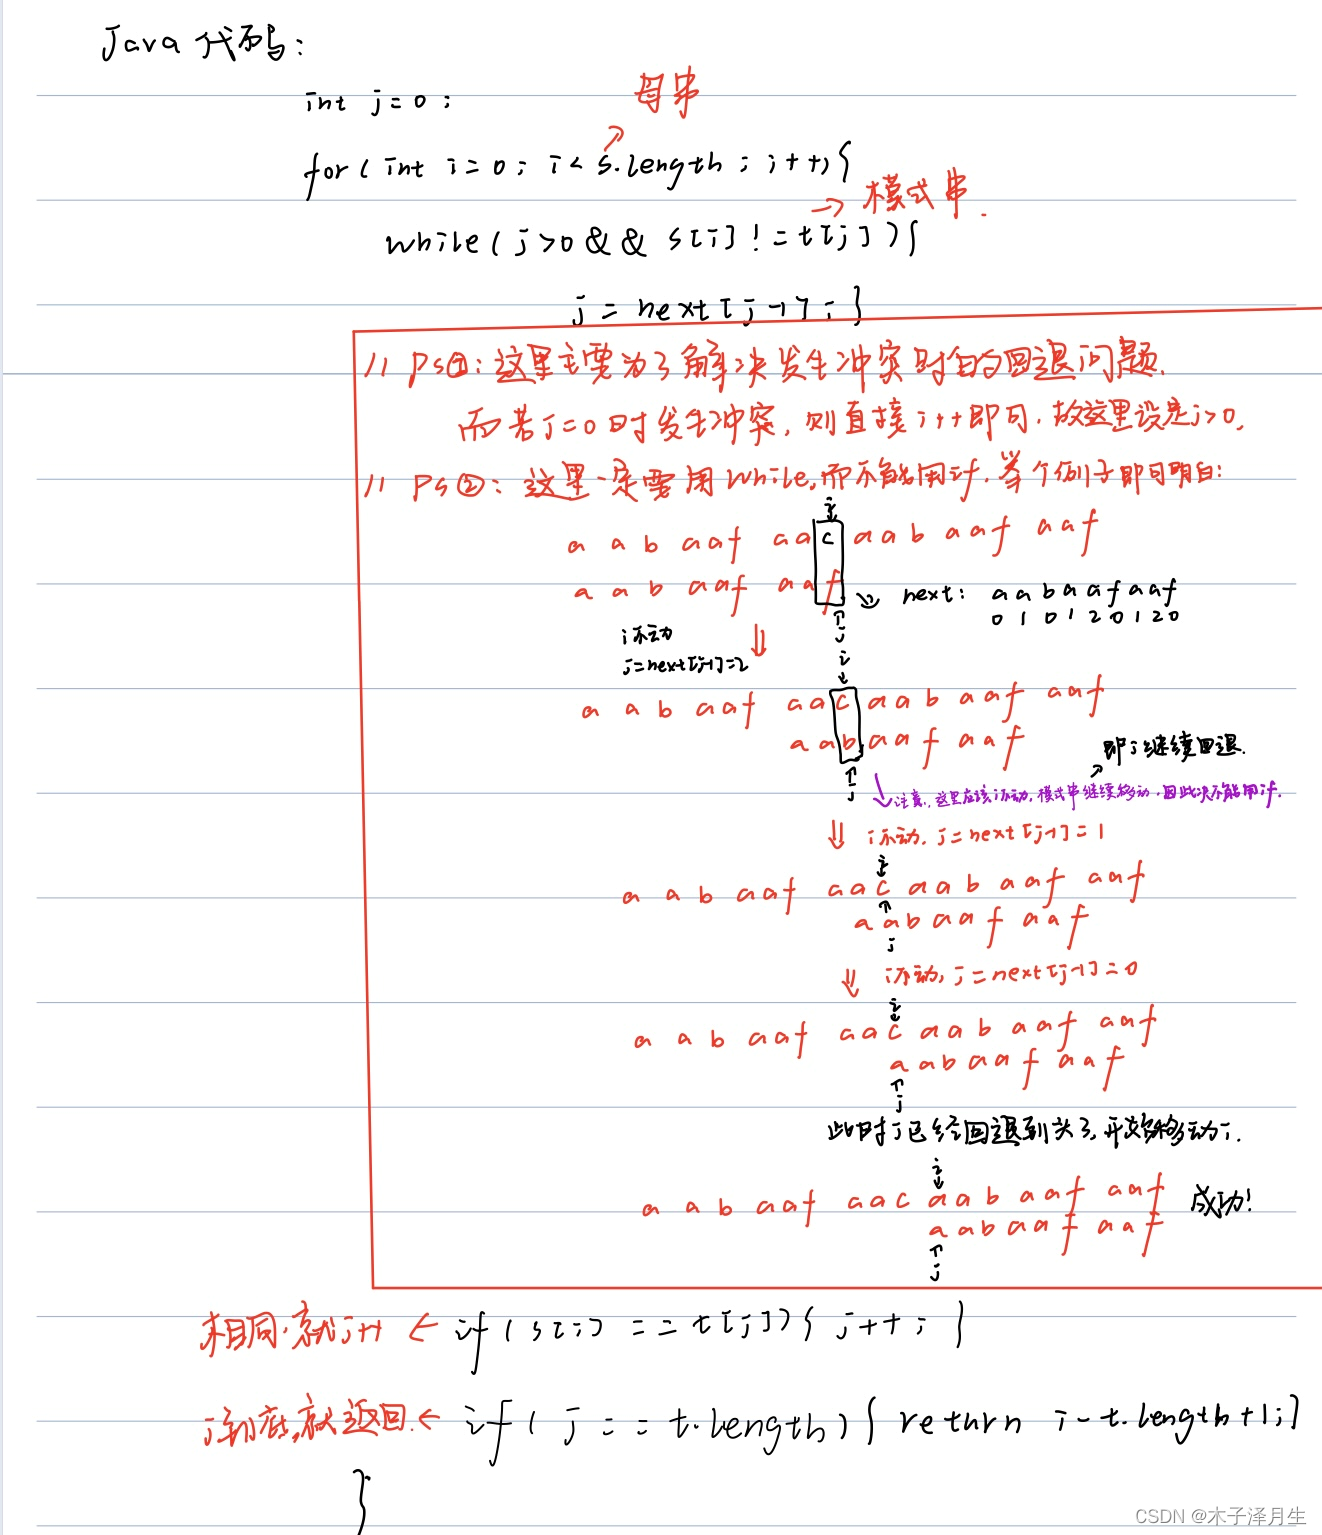 Java 代码:
int j=0;
母串
for(int i=0; i<s.length; i++){
模式串.
while(j>0 && s[i]!=t[j]){
j=next[j-1];}
// Ps①:这里主要为了解决发生冲突时的回退问题.
而若j=0时发生冲突,则直接i++即可,故这里设定j>0.
// Ps②:这里一定要用while,而不能用if.举个例子即可明白:
i
a a b a a f a a c a a b a a f a a f
a a b a a f a a f
next: a a b a a f a a f
0 1 0 1 2 0 1 2 0
j
i不动
j=next[j-1]=2
i
a a b a a f a a c a a b a a f a a f
a a b a a f a a f
即j继续回退.
j
注意,这里应该i不动,模式串继续移动,因此决不能用if.
i不动,j=next[j-1]=1
i
a a b a a f a a c a a b a a f a a f
a a b a a f a a f
j
i不动,j=next[j-1]=0
i
a a b a a f a a c a a b a a f a a f
a a b a a f a a f
j
此时j已经回退到头了,开始移动i.
i
a a b a a f a a c a a b a a f a a f 成功!
a a b a a f a a f
j
相同,就j++ ← if(s[i]==t[j]){ j++; }
j到底,就返回.← if(j==t.length){ return i-t.length+1;}
}
CSDN @木子泽月生